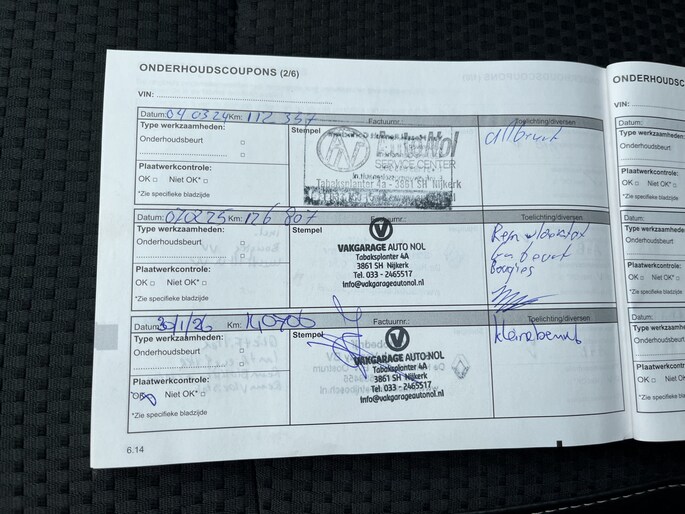 ONDERHOUDSCOUPONS (2/6)
VIN:
Datum: 040324 Km: 112 357 Factuurnr.: Toelichting/diversen
Type werkzaamheden:
Stempel
Onderhoudsbeurt
Plaatwerkcontrole:
OK Niet OK*
*Zie specifieke bladzijde
AutoNol
SERVICE CENTER
Tabaksplanter 4a - 3861 SH Nijkerk
Datum: 070225 Km: 126 807 Toelichting/diversen
Type werkzaamheden:
Stempel
Onderhoudsbeurt
Plaatwerkcontrole:
OK Niet OK*
*Zie specifieke bladzijde
VAKGARAGE AUTO NOL
Tabaksplanter 4A
3861 SH Nijkerk
Tel. 033 - 2465517
info@vakgarageautonol.nl
beurt
bougies
Datum: 30/1/26 Km: Factuurnr.: Toelichting/diversen
Type werkzaamheden:
Stempel
Onderhoudsbeurt
Plaatwerkcontrole:
OK Niet OK*
*Zie specifieke bladzijde
VAKGARAGE AUTO NOL
Tabaksplanter 4A
3861 SH Nijkerk
Tel. 033 - 2465517
info@vakgarageautonol.nl
kleine beurt
6.14
ONDERHOUDSC
VIN:
Datum:
Type werkzaamheden:
Onderhoudsbeurt
Plaatwerkcontrole:
OK Niet OK*
*Zie specifieke bladz
Datum:
Type werkzaamheden:
Onderhoudsbeurt
Plaatwerkcontrole:
OK Niet OK*
*Zie specifieke bladzi
Datum:
Type werkzaamheden:
Onderhoudsbeurt
Plaatwerkcontrole:
OK Niet OK*
*Zie specifieke bladzij